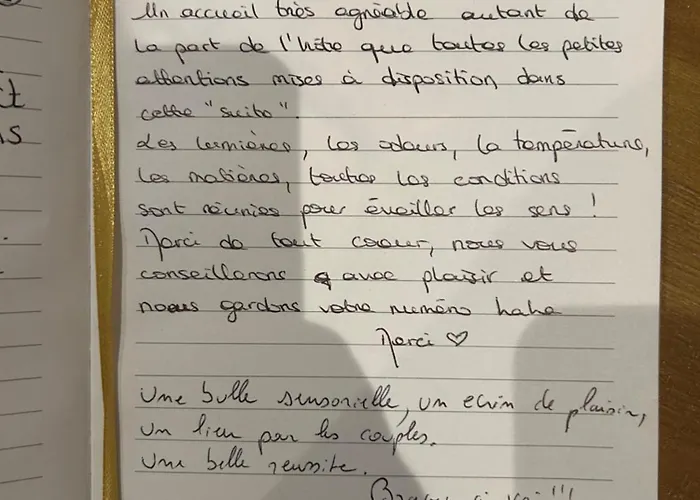 Un accueil très agréable autant de
la part de l'hôte que toutes les petites
attentions mises à disposition dans
cette "suite".
Les lumières, les odeurs, la température,
les matières, toutes les conditions
sont réunies pour éveiller les sens !
Merci de tout coeur, nous vous
conseillerons avec plaisir et
nous gardons votre numéro haha
Merci ♡
Une bulle sensorielle, un ecrin de plaisir,
un lieu par les couples.
Une belle reussite.